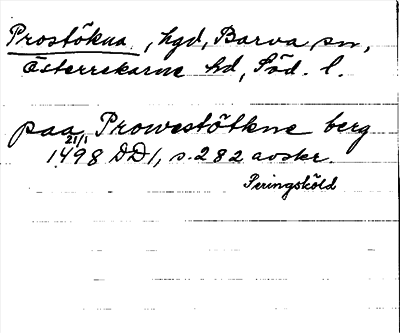 Prostökna, hgd, Barva sn,
Österrekarne hd, Söd. l.
paa Prowestötkne berg
21/1
1498 DD1, s. 282 avskr.
Peringsköld